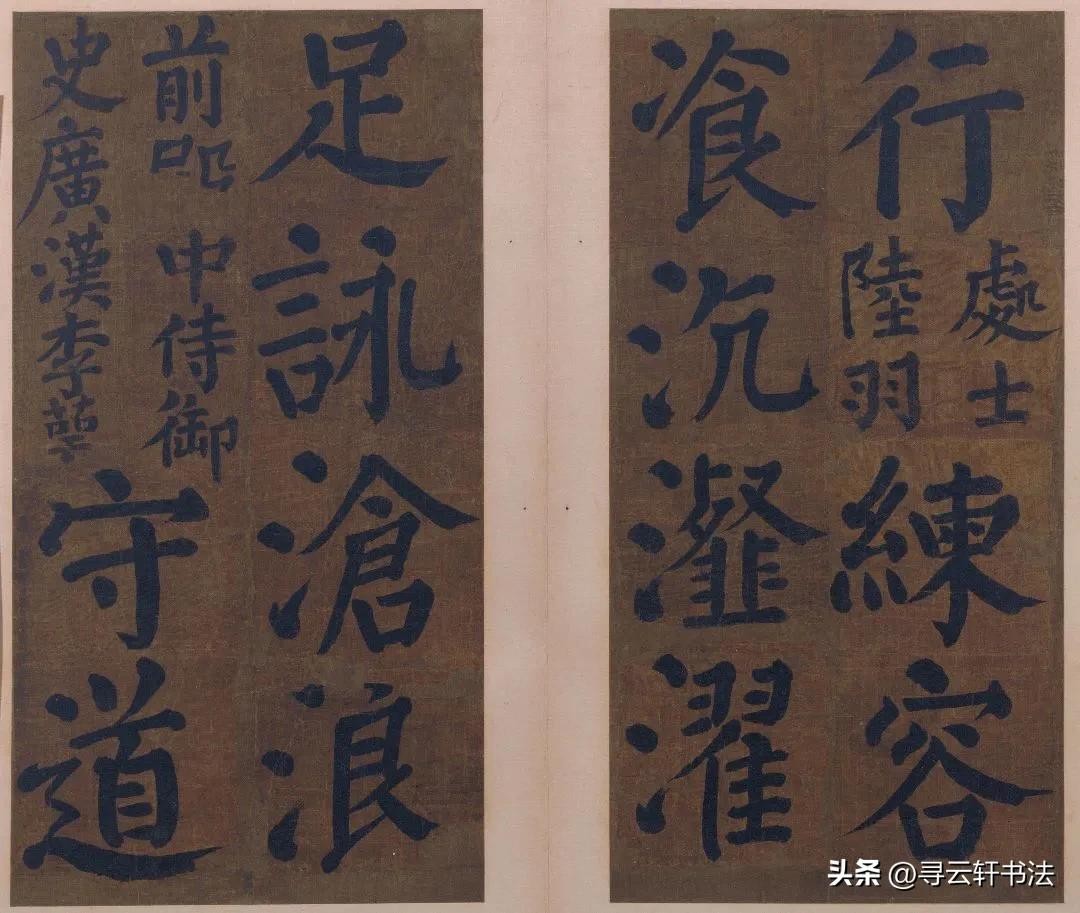 行
處士
陸羽
練容
飡沆瀣濯
足詠滄浪
前 中侍御
史廣漢李萼
守道
头条 @寻云轩书法